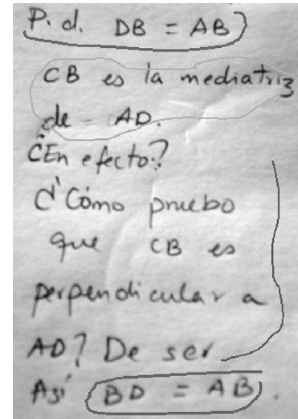 P.d. DB = AB
CB es la mediatriz
de AD.
¿En efecto?
¿Cómo pruebo
que CB es
perpendicular a
AD? De ser
Así BD = AB.